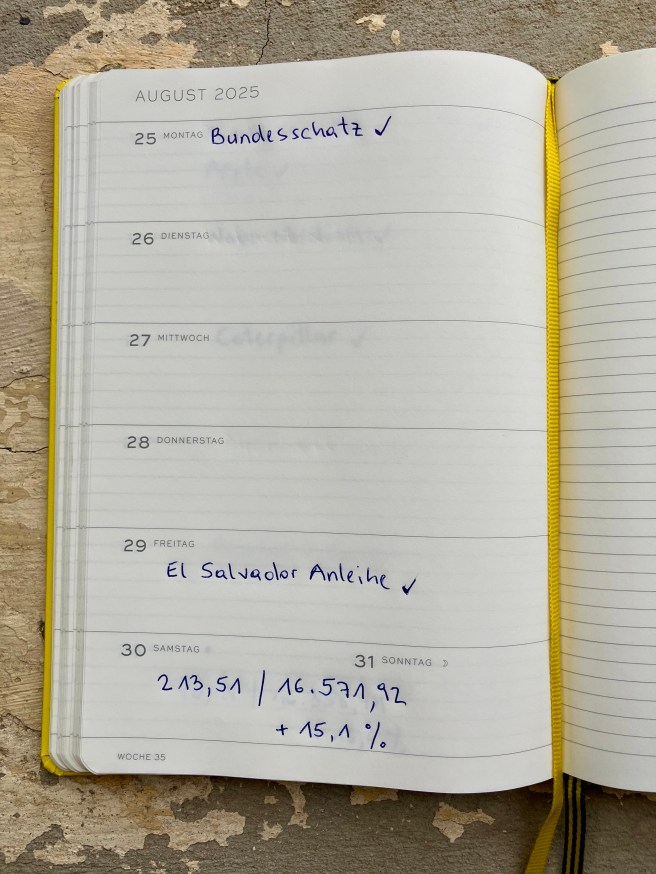 AUGUST 2025
25 MONTAG Bundesschatz ✓
26 DIENSTAG
27 MITTWOCH
28 DONNERSTAG
29 FREITAG
El Salvador Anleihe ✓
30 SAMSTAG
31 SONNTAG
213,51 / 16.571,92
+ 15,1 %
WOCHE 35